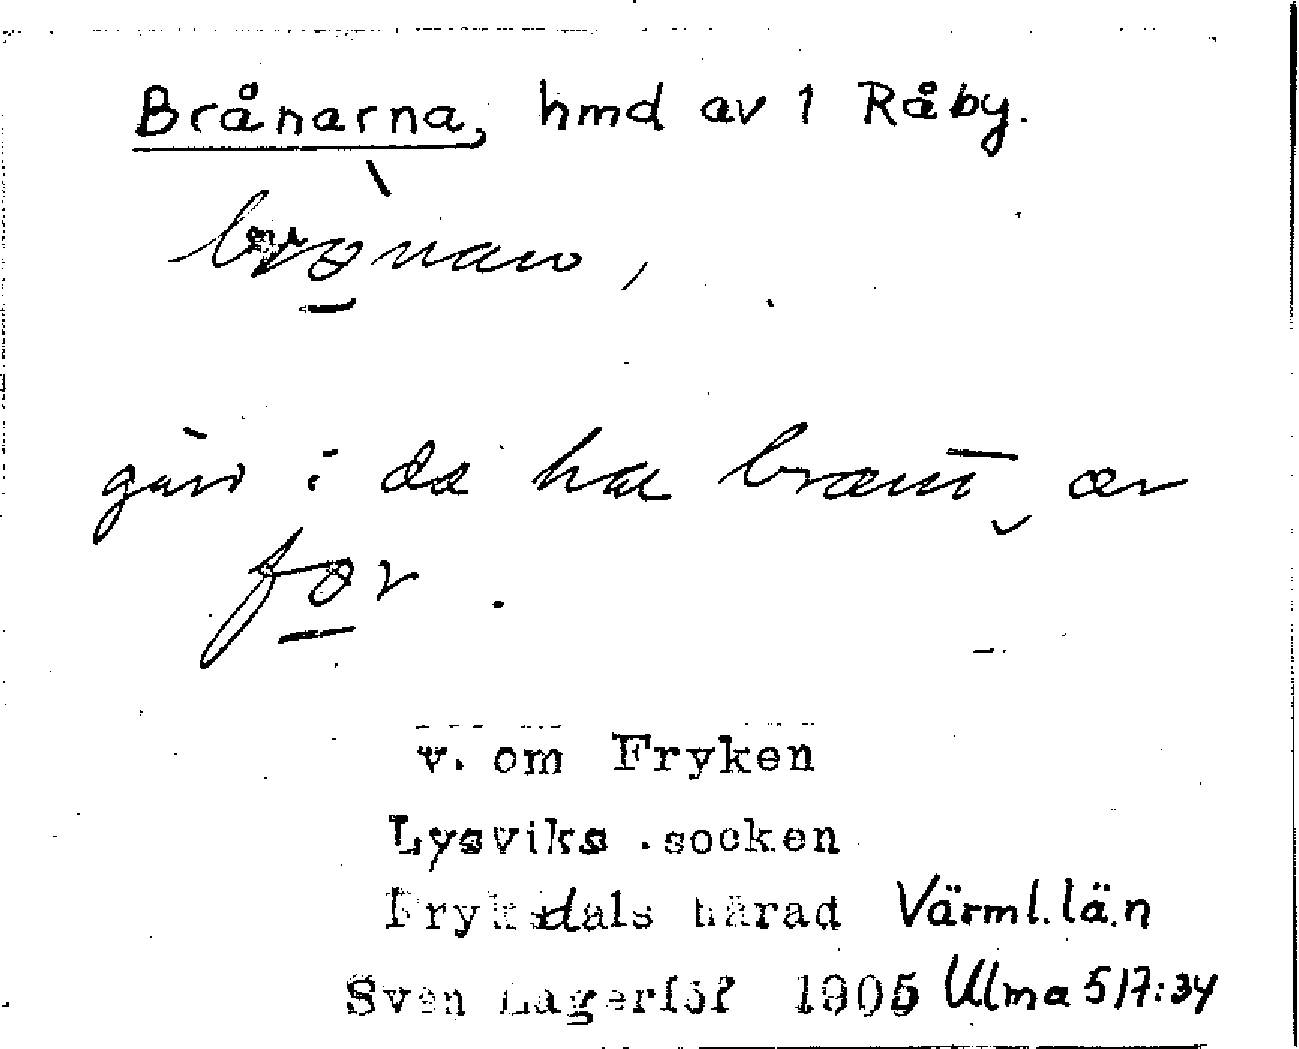 Brånarna, hmd av 1 Råby.
brønaʀ,
gåɷ : da har brænt, ær
før.
v. om Fryken
Lysviks socken
Fryksdals härad Värml. län
Sven Lagerlöf 1905 Ulma 517:34